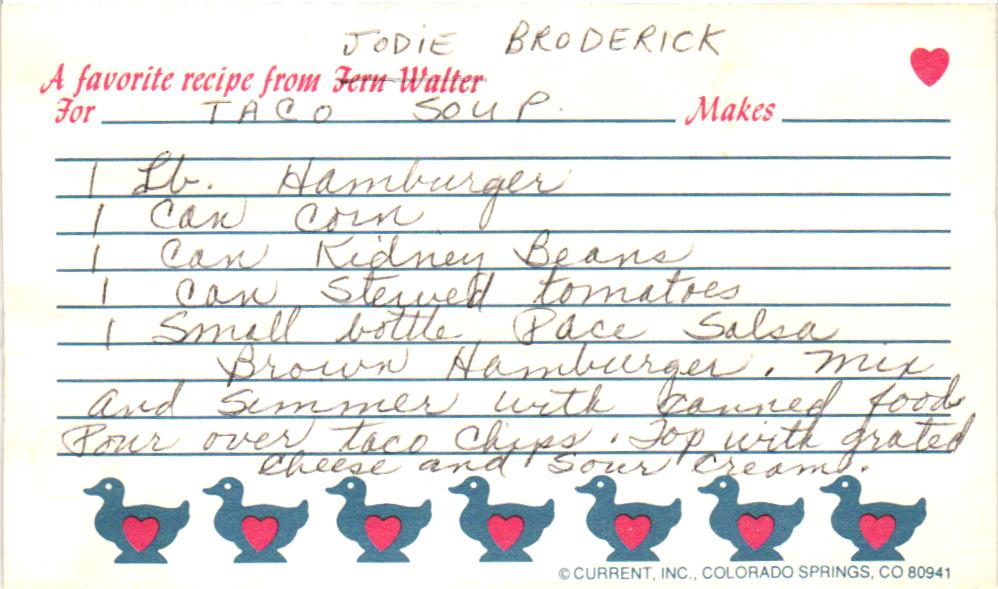 JODIE BRODERICK
A favorite recipe from Fern Walter
For TACO SOUP. Makes
1 Lb. Hamburger
1 Can Corn
1 Can Kidney Beans
1 Can Stewed tomatoes
1 Small bottle Pace Salsa
Brown Hamburger. Mix
and Simmer with canned food
Pour over taco Chips. Top with grated
cheese and sour cream.
© CURRENT, INC., COLORADO SPRINGS, CO 80941